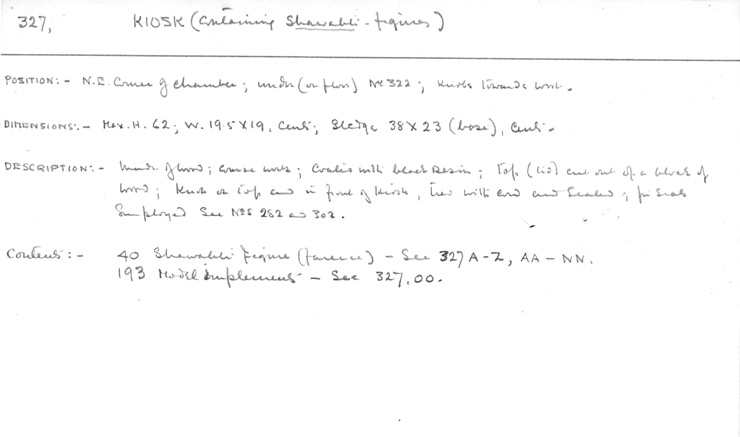 327, KIOSK (Containing Shawabti-figures)
POSITION:- N.E. Corner of chamber; under (on floor) No 322; Knobs towards West.
DIMENSIONS:- Max. H. 62; W. 19.5 X 19, Cents; Sledge 38 X 23 (base), Cents.
DESCRIPTION:- Made of wood; coarse work; Coated with black Resin; Top (lid) cut out of a block of
wood; Knob on top and in front of Kiosk, tied with cord and Sealed; for Seals
Employed See Nos 252 and 302.
Contents:- 40 Shawabti Figures (faience) - See 327 A-Z, AA - NN.
193 Model implements - See 327,OO.